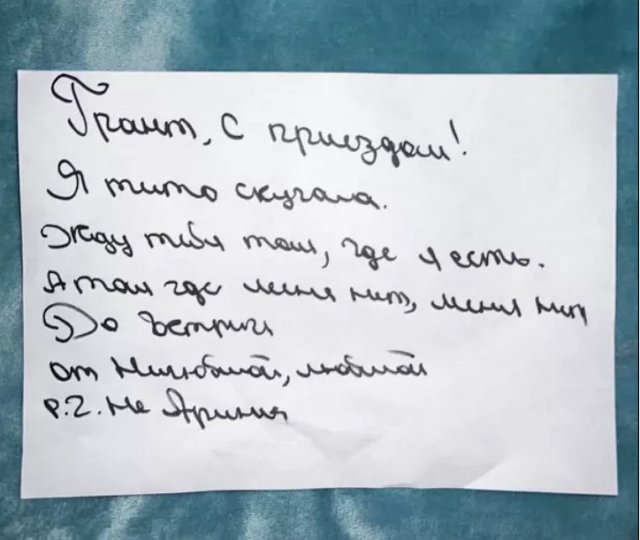 Грант, с приездом!
Я типо скучала.
Жду тебя там, где я есть.
А там где меня нет, меня нет
До встречи
от Нелюбимой, любимой
P.Z. Не Ариния